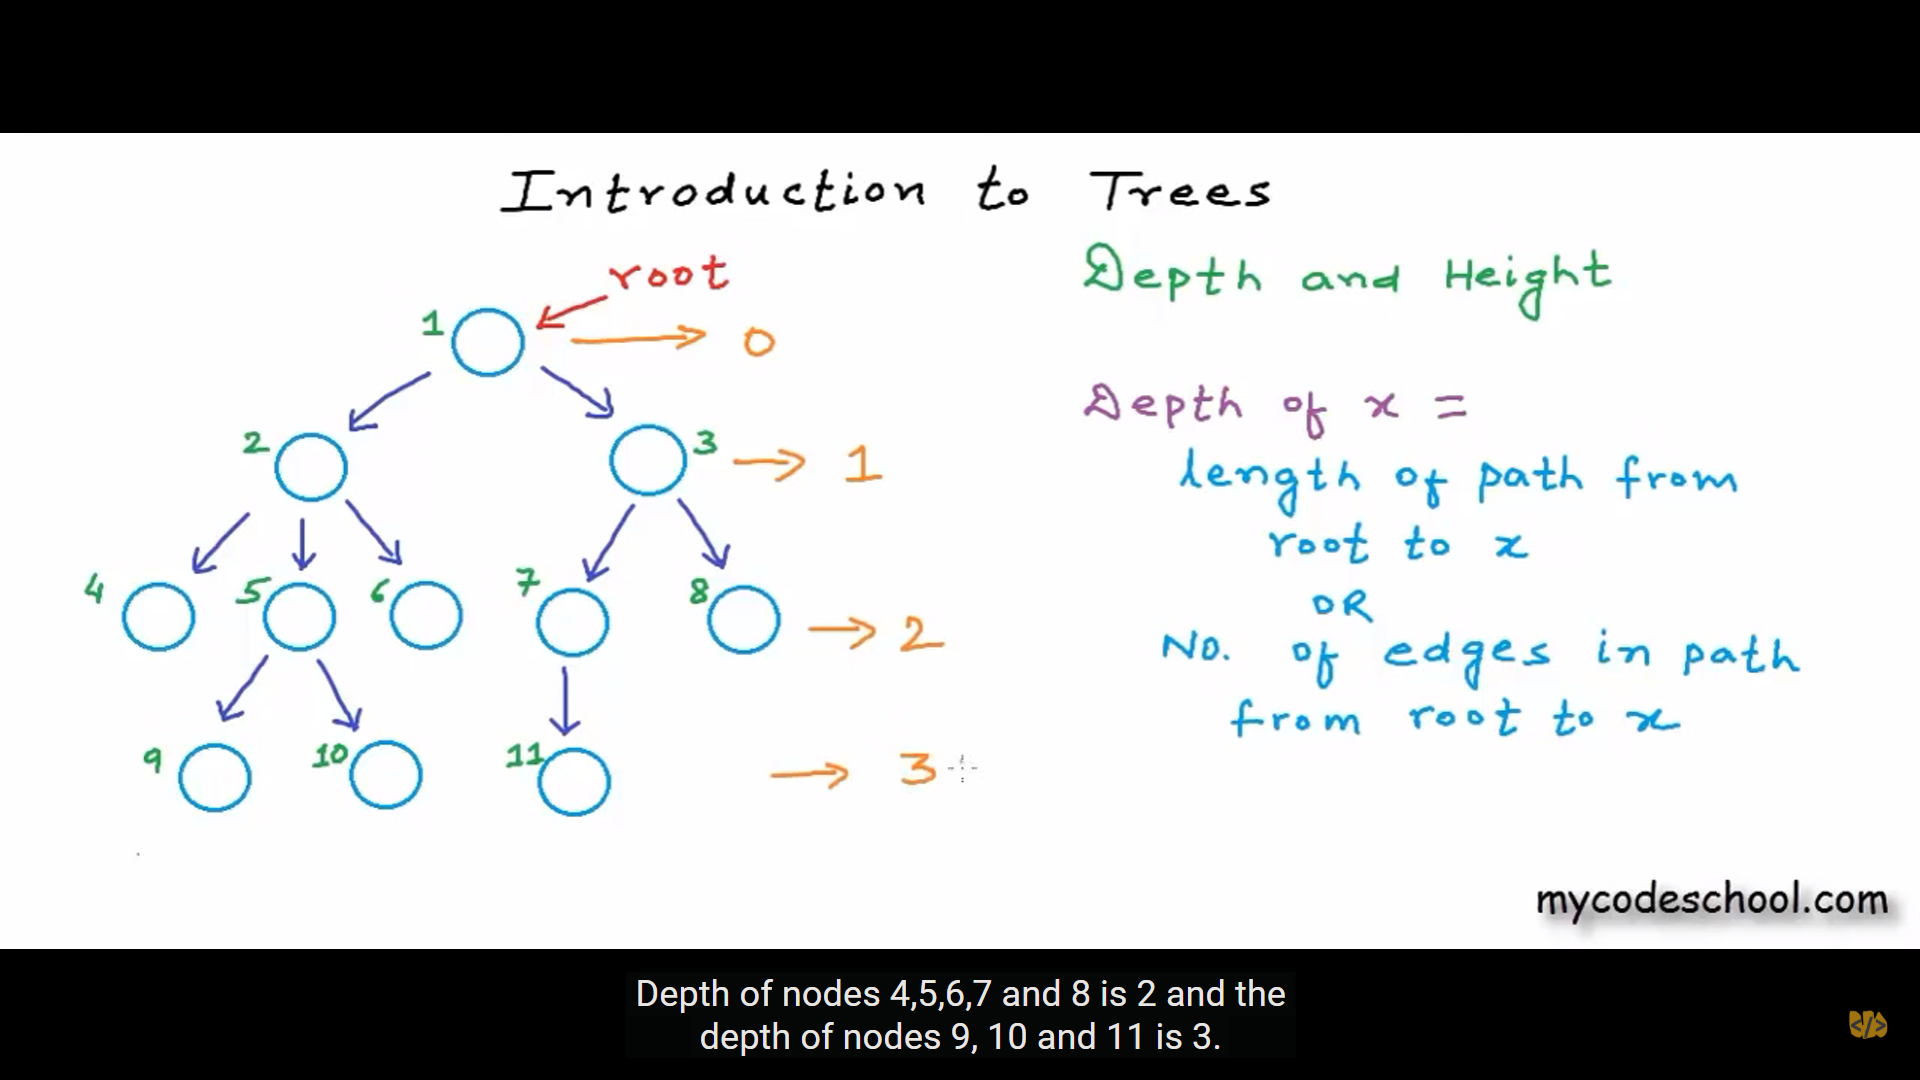 Introduction to Trees
root
Depth and Height
1
0
Depth of x =
2
3
1
length of path from
root to x
4
5
6
7
8
2
OR
No. of edges in path
from root to x
9
10
11
3
mycodeschool.com
Depth of nodes 4,5,6,7 and 8 is 2 and the
depth of nodes 9, 10 and 11 is 3.